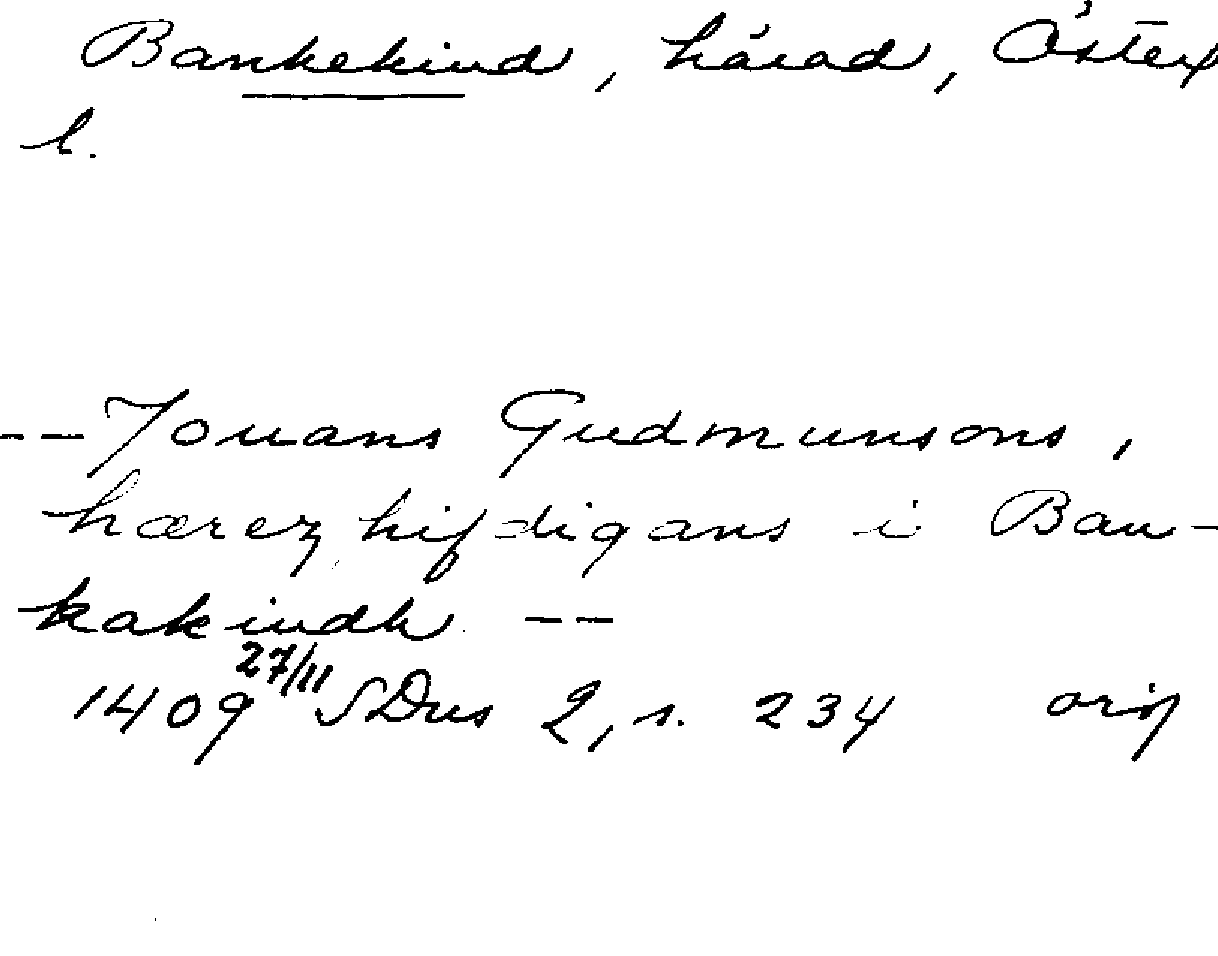 Bankekind, härad, Österg
l.
-- Jouans Gudmunsons,
hærezhifdigans i Ban-
kakindh --
1409 27/11 SDns 2, s. 234 orig